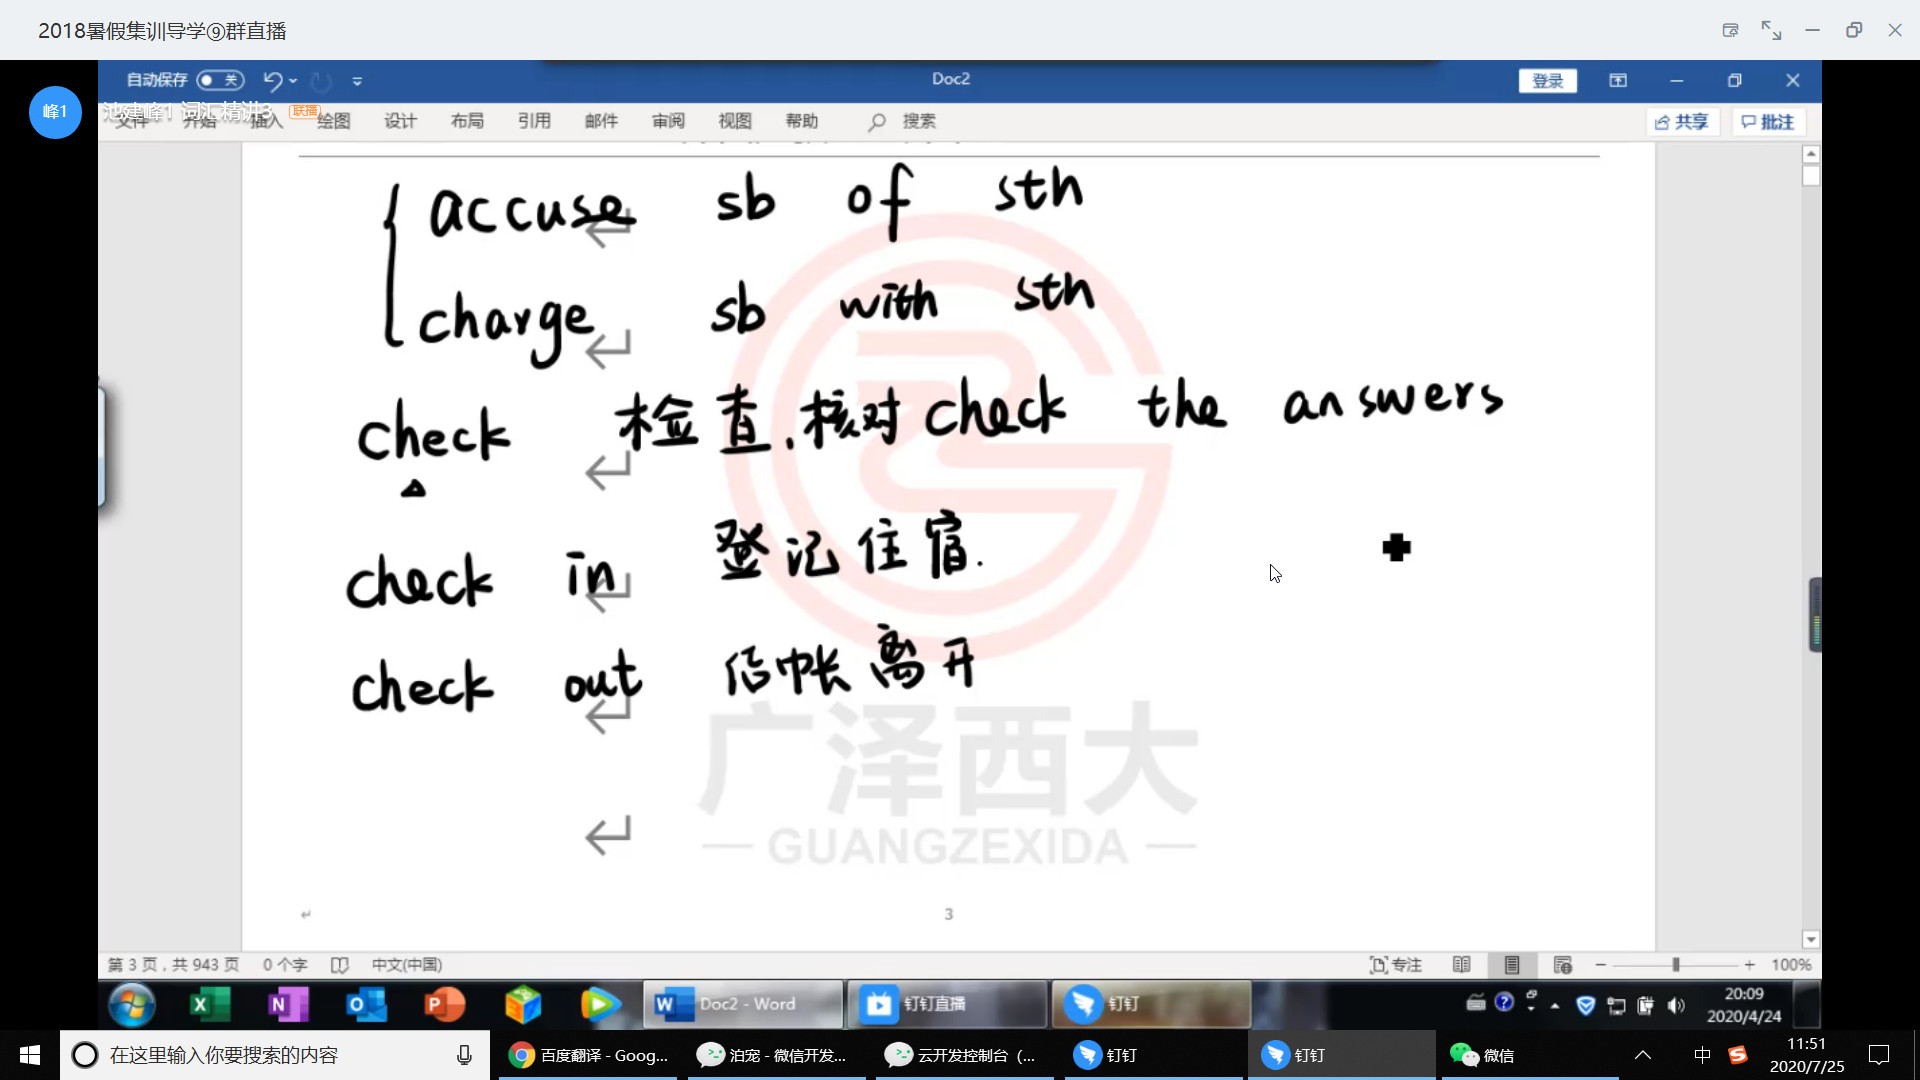 2018暑假集训导学⑨群直播
自动保存 关 Doc2 登录
峰1 池建峰1 词汇精讲3 联播
文件 开始 插入 绘图 设计 布局 引用 邮件 审阅 视图 帮助 搜索 共享 批注
accuse sb of sth
charge sb with sth
check 检查,核对 check the answers
check in 登记住宿.
check out 结帐离开
广泽西大
— GUANGZEXIDA —
3
第 3 页,共 943 页 0 个字 中文(中国) 专注 100%
Doc2 - Word 钉钉直播 钉钉 20:09
2020/4/24
在这里输入你要搜索的内容 百度翻译 - Goog... 泊宠 - 微信开发... 云开发控制台 (... 钉钉 钉钉 微信 中 11:51
2020/7/25